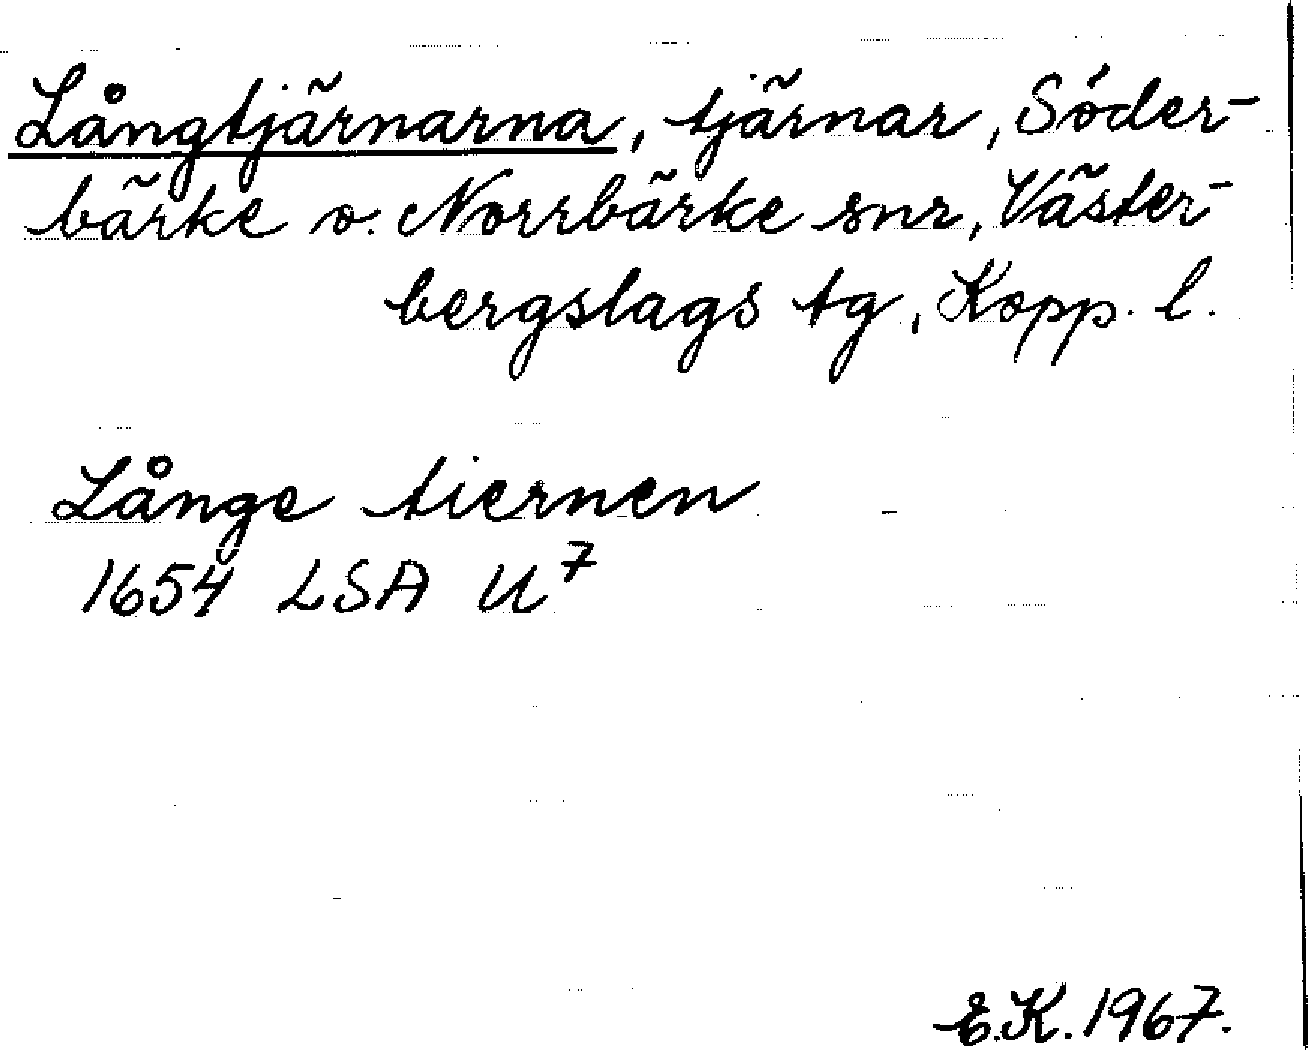 Långtjärnarna, tjärnar, Söder-
bärke o. Norrbärke snr, Väster-
bergslags tg, Kopp. l.
Långe tiernen
1654 LSA U⁷
E.K. 1967.